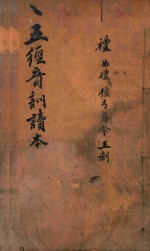 禮 曲禮 檀弓 月令 王制
五經音訓讀本